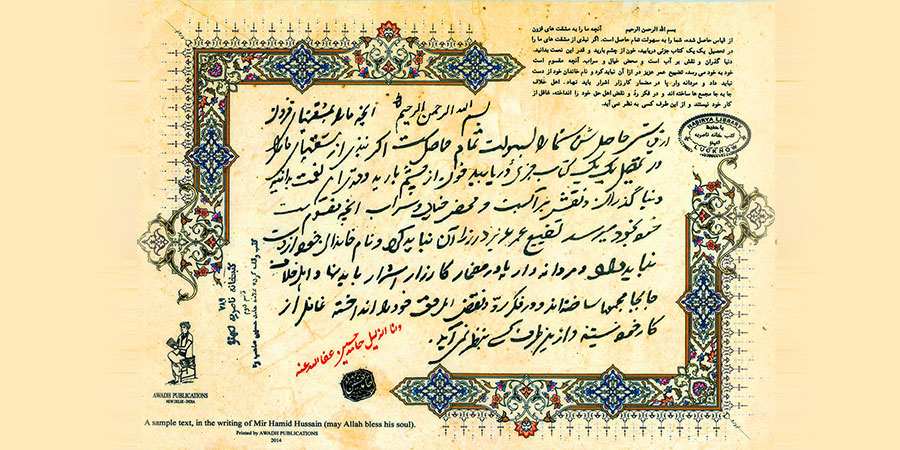 بسم الله الرحمن الرحیم آنچه ما را به مشقت های فزون
از قیاس حاصل شده، شما را به سهولت تمام حاصل است. اگر نبذی از مشقت های ما را
در تحصیل یک یک کتاب جزئی دریابید، خون از چشم بارید و قدر این نعمت بدانید.
دنیا گذران و نقش بر آب است و محض خیال و سراب، آنچه مقسوم است
خود به خود می رسد، تضییع عمر عزیز در ازا آن نباید کرد و نام خاندان خود از دست
نباید داد و مردانه وار پا در مضمار کارزار اشرار باید نهاد، اهل خلاف
جا به جا مجمع ها ساخته اند و در فکر ردّ و نقض اهل حق خود را انداخته، غافل از
کار خود نیستند و از این طرف کسی به نظر نمی آید.
بسم الله الرحمن الرحیم آنچه ما را بمشقتهای فزون
از قیاس حاصل شده شما را بسهولت تمام حاصل است اگر نبذی از مشقتهای ما را
در تحصیل یک یک کتاب جزئی دریابید خون از چشم بارید و قدر این نعمت بدانید
دنیا گذران و نقش بر آبست و محض خیال و سراب آنچه مقسوم است
خود بخود میرسد تضییع عمر عزیز در ازا آن نباید کرد و نام خاندان خود از دست
نباید داد و مردانه وار پا در مضمار کارزار اشرار باید نهاد اهل خلاف
جابجا مجمعها ساخته اند و در فکر رد و نقض اهل حق خود را انداخته غافل از
کار خود نیستند و از این طرف کسی بنظر نمی آید
وانا الذلیل حامد حسین عفا الله عنه
NASIRYA LIBRARY
کتب خانه ناصریه
لکهنؤ
LUCKNOW
کتبخانه ناصریه لکهنؤ
AWADH PUBLICATIONS
NEW DELHI - INDIA
A sample text, in the writing of Mir Hamid Hussain (may Allah bless his soul).
Printed by AWADH PUBLICATIONS
2014